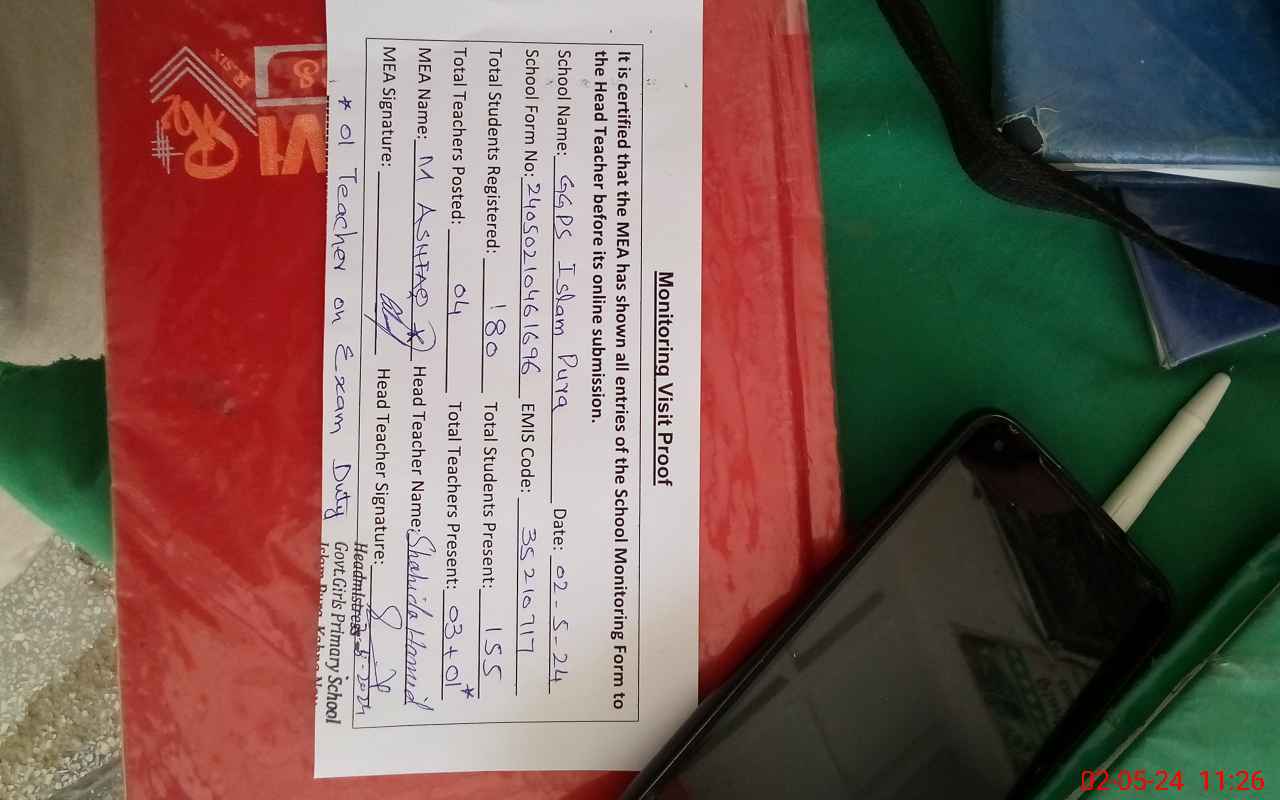 Monitoring Visit Proof
It is certified that the MEA has shown all entries of the School Monitoring Form to
the Head Teacher before its online submission.
School Name: GGPS Islam Pura Date: 02-5-24
School Form No: 240502104461696 EMIS Code: 35210717
Total Students Registered: 180 Total Students Present: 155
Total Teachers Posted: 04 Total Teachers Present: 03+01*
MEA Name: M ASHFAQ Head Teacher Name: Shahida Hamid
MEA Signature: Head Teacher Signature:
* 01 Teacher on Exam Duty
Headmistress
Govt. Girls Primary School
Islam Pura
R.SIX
02-05-24 11:26